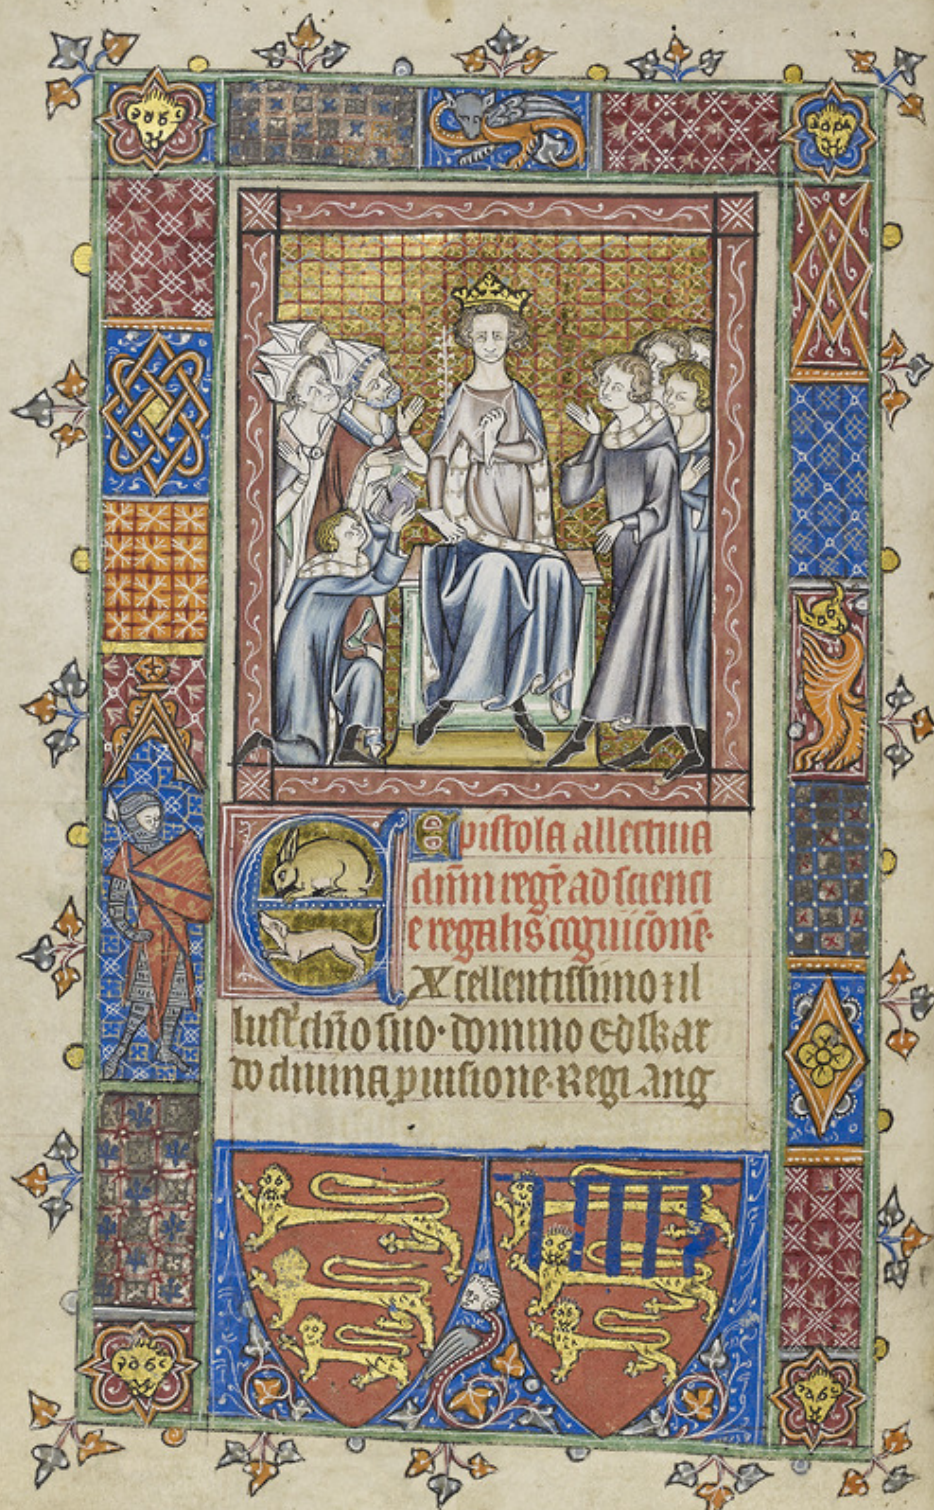 Epistola allectiua
dn̄m regē ad scienci
e regalis cogniciōne·
Excellentissimo ⁊ il
lust' dn̄o suo· domino Edwar
do diuina ꝓuisione· Regi Ang